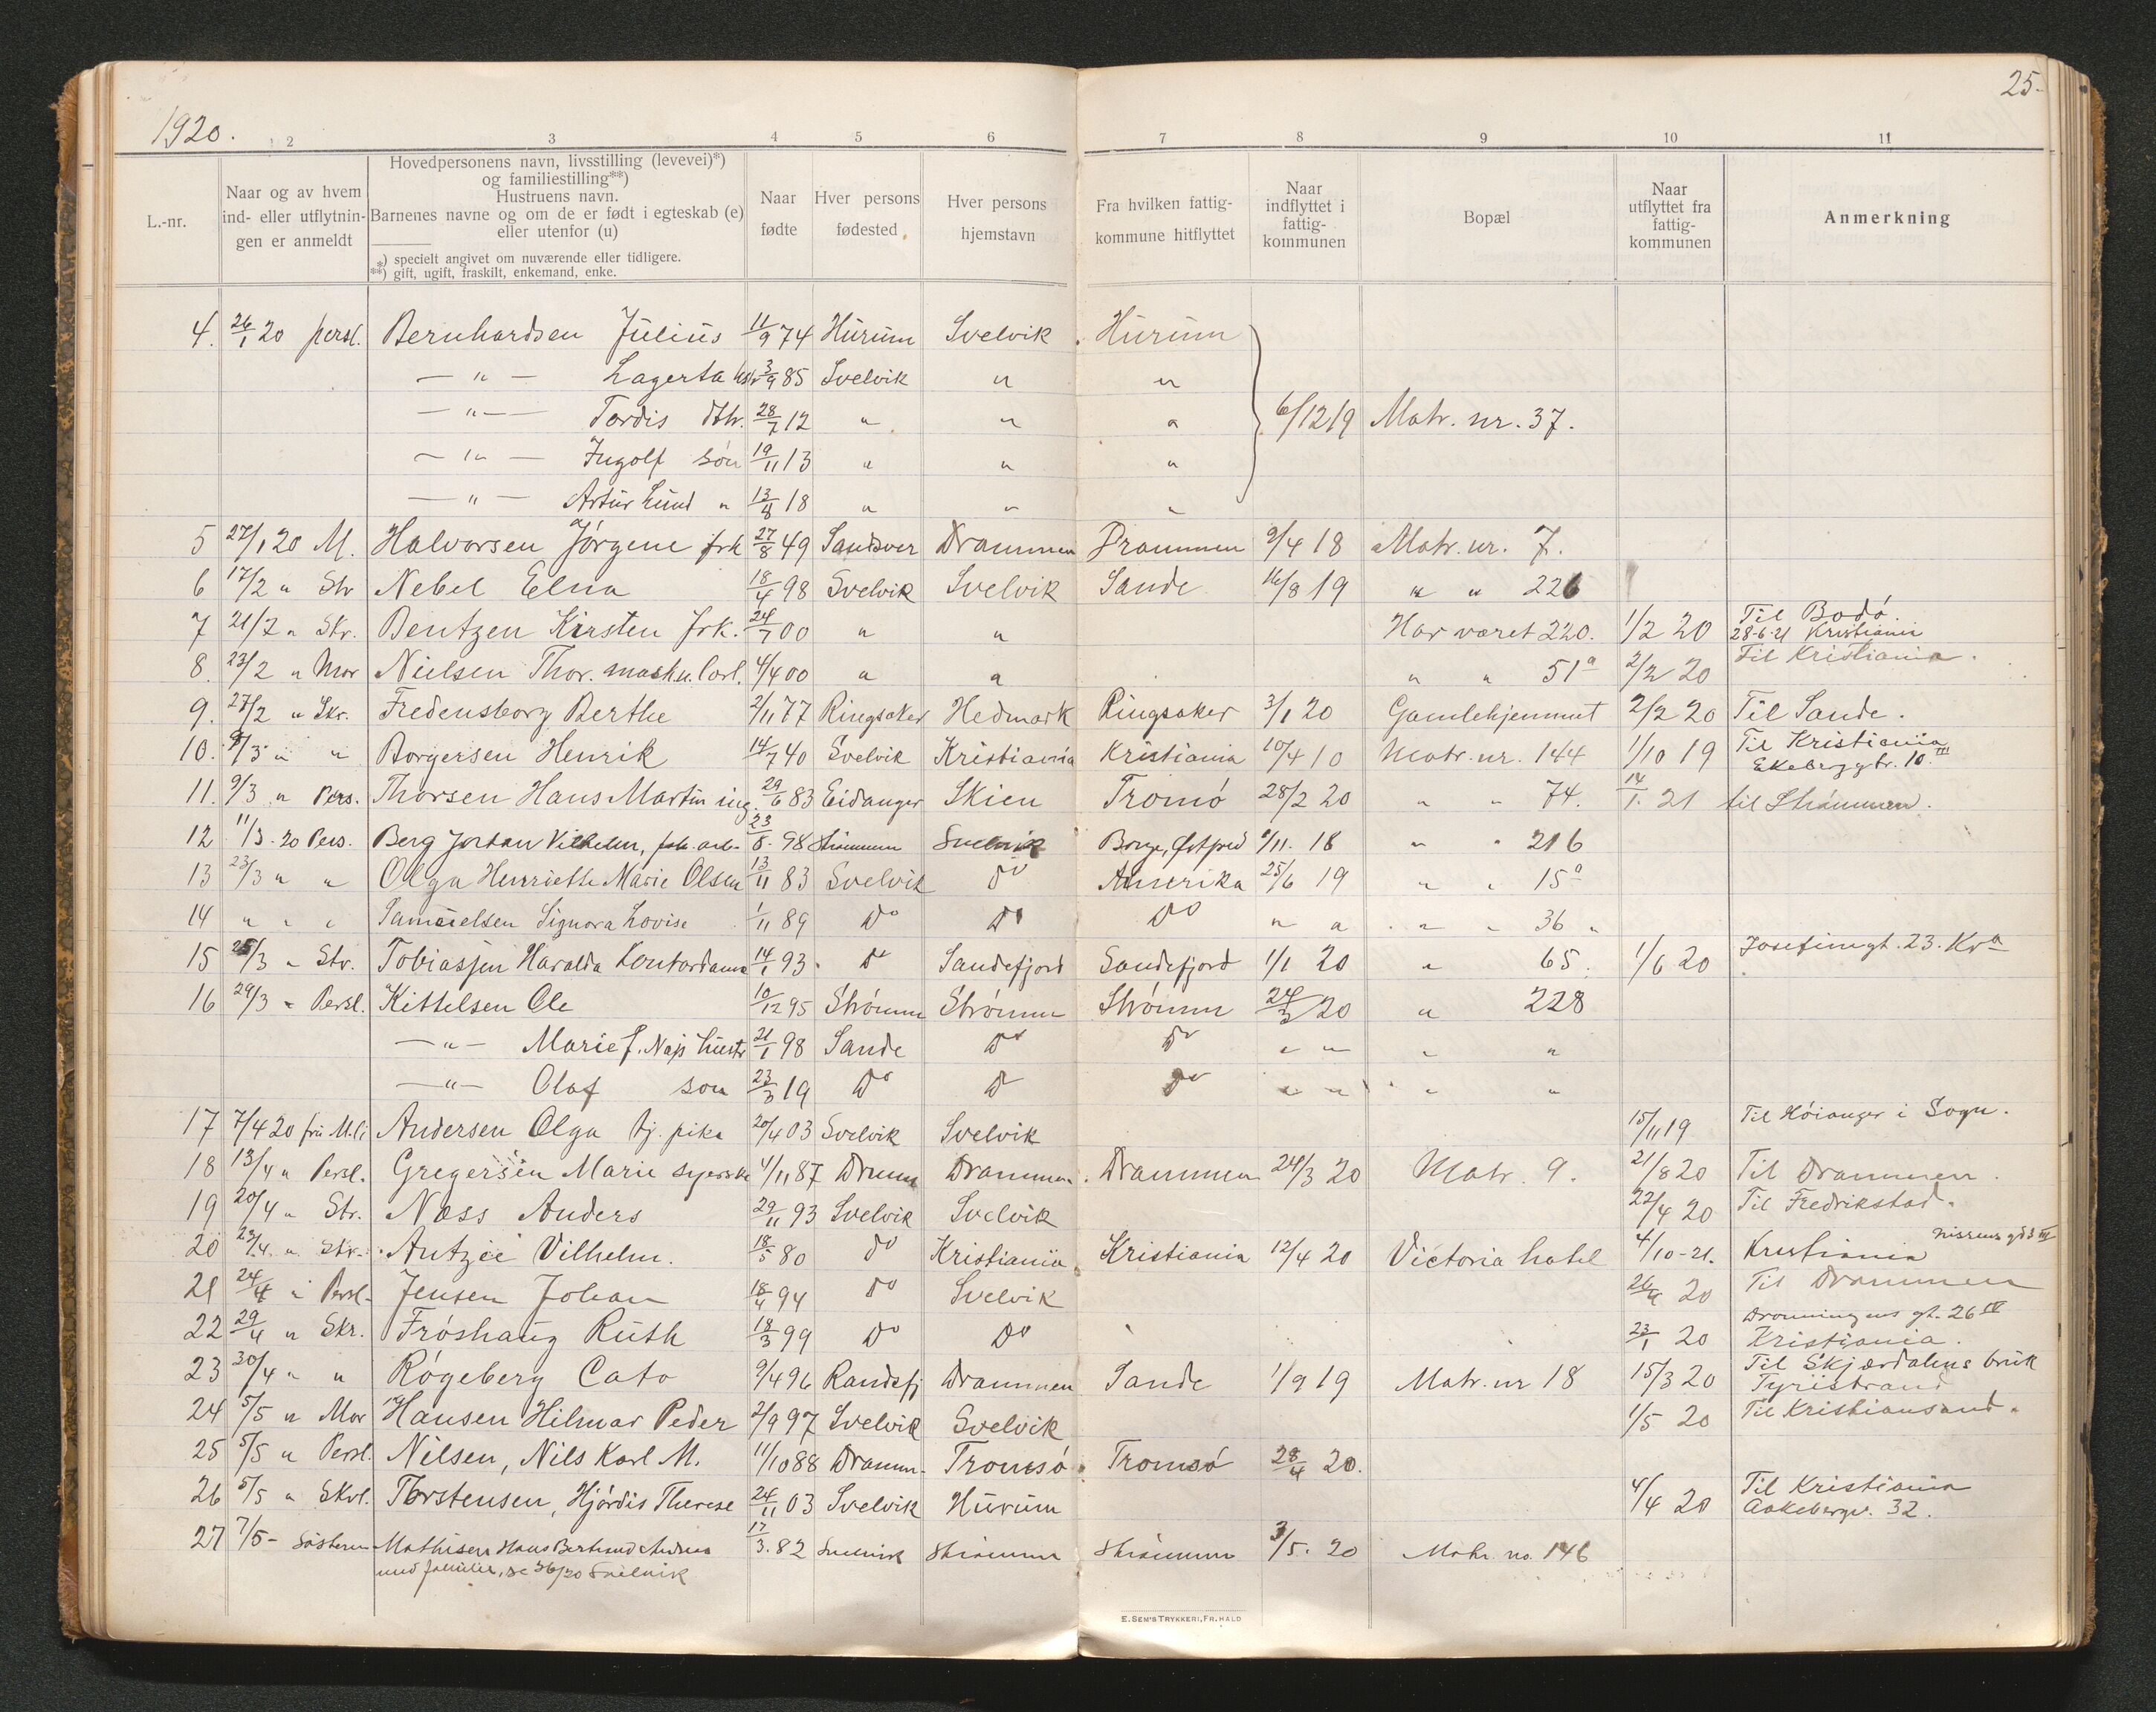 1920.
25.
2 3 4 5 6 7 8 9 10 11
L.-nr.
Naar og av hvem ind- eller utflytningen er anmeldt
Hovedpersonens navn, livsstilling (levevei)*)
og familiestilling**)
Hustruens navn.
Barnenes navne og om de er født i egteskab (e)
eller utenfor (u)
*) specielt angivet om nuværende eller tidligere.
**) gift, ugift, fraskilt, enkemand, enke.
Naar fødte
Hver persons fødested
Hver persons hjemstavn
Fra hvilken fattigkommune hitflyttet
Naar indflyttet i fattigkommunen
Bopæl
Naar utflyttet fra fattigkommunen
Anmerkning
4. 26/1 20 persl. Bernhardsen Julius 11/9 74 Hurum Svelvik Hurum
— " — Lagerta 3/9 85 Svelvik " "
— " — Tordis dtr. 28/7 12 " " " 6/12 19 Matr. nr. 37.
— " — Ingolf søn 19/11 13 " " "
— " — Artur Lund " 13/8 18 " " "
5 27/1 20 M. Halvorsen Jørgine frk 27/8 49 Sandsver Drammen Drammen 9/4 18 Matr. nr. 7.
6 17/2 " Str Nebel Elna 18/4 98 Svelvik Svelvik Sande 16/8 19 " " 226
7 21/2 " Skr. Bentzen Kirsten frk. 24/7 00 " " Har været 220. 1/2 20 Til Bodø.
28-6-21 Kristiania
8. 23/2 " Mor Nielsen Thor. 4/4 00 " " " " 51a 2/2 20 Til Kristiania.
9. 27/2 " Skr. Fredensborg Berthe 2/11 77 Ringsaker Hedmark Ringsaker 3/1 20 Gamlehjemmet 2/2 20 Til Sande.
10. 9/3 " " Borgersen Henrik 14/7 40 Svelvik Kristiania Kristiania 10/4 10 Matr. nr. 144 1/10 19 Til Kristiania
Ekeberggt. 10 III
11. 9/3 " Pers. Thorsen Hans Martin ing. 29/6 83 Eidanger Skien Tromø 28/2 20 " " 74. 14/1. 21 til Strømmen.
12 11/3. 20 Pers. Berg Johan Vilhelm, fab. arb. 23/8. 98 Strømmen Svelvik Borge, Østfold /11. 18 " " 216
13 23/3 " " Olga Henriette Marie Olsen 13/11 83 Svelvik do Amerika 25/6 19 " " 15a
14 " " " Samuelsen Signora Lovise 1/11 89 do do do " " " " 36 "
15 25/3 " Str. Tobiassen Haralda Kontordame 14/1 93 do Sandefjord Sandefjord 1/1 20 " 65. 1/6 20 Josefinegt. 23. Kra
16 29/3 " Persl. Kittelsen Ole 10/12 95 Strømm Strømm Strømm 24/3 20 " 228
— " — Marie f. Næss hustr 21/1 98 Sande do do " " " "
— " — Olaf søn 23/3 19 do do do " " " "
17 7/4 20 fru M.li Andersen Olga tj. pike 20/4 03 Svelvik Svelvik 15/11 19 Til Høianger i Sogn.
18 13/4 " Persl. Gregersen Marie syerske 4/11 87 Dramm Drammen Drammen 24/3 20 Matr. 9. 21/8 20 Til Drammen.
19 20/4 " Str. Næss Anders 29/11 93 Svelvik Svelvik 22/4 20 Til Fredrikstad.
20 22/4. " Str. Antzée Vilhelm. 18/5 80 do Kristiania Kristiania 12/4 20 Victoria hotel 4/10-21. Kristiania
21 24/4 " Persl. Jensen Johan 18/4 94 do Svelvik 26/4 20 Til Drammen
22 29/4 " Skr. Frøshaug Ruth 18/3 99 do do 23/1 20 Dronningens gt. 26 IV
Kristiania.
23 30/4 " " Røgeberg Cato 9/4 96 Randsfj Drammen Sande 1/9 19 Matr. nr 18 15/3 20 Til Skjærdalens bruk
Tyristrand
24 5/5 " Mor Hansen Hilmar Peder 2/9 97 Svelvik Svelvik 1/5 20 Til Kristiansand.
25 5/5 " Persl. Nilsen, Nils Karl M. 11/10 88 Dramm. Tromsø Tromsø 28/4 20.
26 5/5 " Skrl. Torstensen, Hjørdis Therese 24/11 03 Svelvik Hurum 4/4 20 Til Kristiania
Aakebergv. 32.
27 7/5 - Søsteren Mathisen Hans Bertrand Andreas 17/3. 82 Svelvik Strømmen Strømmen 3/5. 20 Matr. no. 146
med familie, se 36/20 Svelvik
E. SEM'S TRYKKERI, FR.HALD